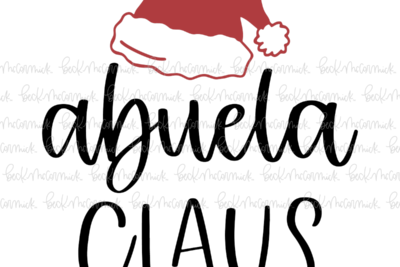 abuela
CLAUS